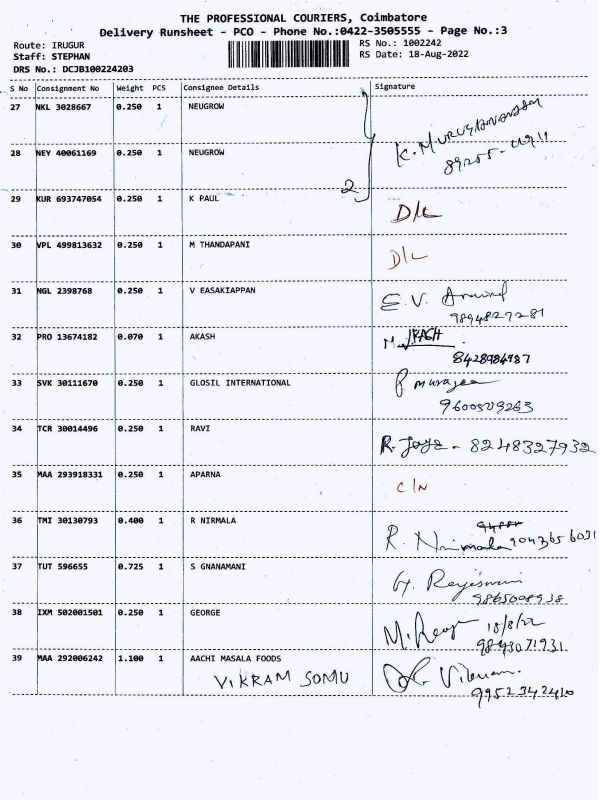 THE PROFESSIONAL COURIERS, Coimbatore
Delivery Runsheet - PCO - Phone No.:0422-3505555 - Page No.:3
Route: IRUGUR RS No.: 1002242
Staff: STEPHAN RS Date: 18-Aug-2022
DRS No.: DCJB100224203
S No Consignment No Weight PCS Consignee Details Signature
27 NKL 3028667 0.250 1 NEUGROW
28 NEY 40061169 0.250 1 NEUGROW
2
29 KUR 693747054 0.250 1 K PAUL D/L
30 VPL 499813632 0.250 1 M THANDAPANI D/L
31 NGL 2398768 0.250 1 V EASAKIAPPAN E.V. Arvind
9894827281
32 PRO 13674182 0.070 1 AKASH
8428984987
33 SVK 30111670 0.250 1 GLOSIL INTERNATIONAL
9600509263
34 TCR 30014496 0.250 1 RAVI
R. Joyz - 8248327932
35 MAA 293918331 0.250 1 APARNA C/N
36 TMI 30130793 0.400 1 R NIRMALA
R. Nirmala 9043656031
37 TUT 596655 0.725 1 S GNANAMANI
9865008938
38 IXM 502001501 0.250 1 GEORGE 18/8/22
9843071931
39 MAA 292006242 1.100 1 AACHI MASALA FOODS
VIKRAM SOMU
9952342410